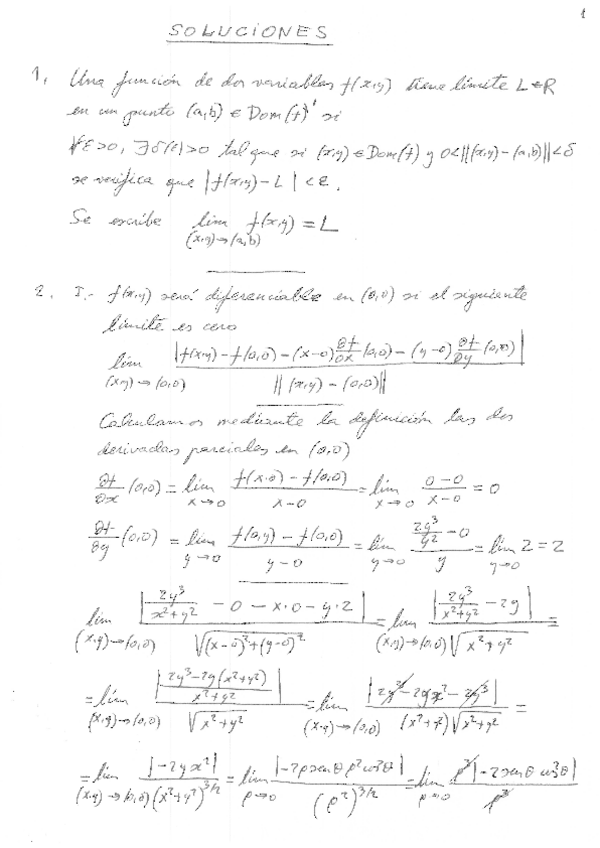 1
SOLUCIONES
1. Una función de dos variables f(x,y) tiene límite L∈R
en un punto (a,b) ∈ Dom(f)' si
∀ε>0, ∃δ(ε)>0 tal que si (x,y)∈Dom(f) y 0<||(x,y)-(a,b)||<δ
se verifica que |f(x,y)-L| <ε.
Se escribe lim f(x,y) = L
(x,y)→(a,b)
2. I.- f(x,y) será diferenciable en (0,0) si el siguiente
límite es cero
lim |f(x,y)-f(0,0)-(x-0)∂f/∂x(0,0)-(y-0)∂f/∂y(0,0)| / ||(x,y)-(0,0)||
(x,y)→(0,0)
Calculamos mediante la definición las dos
derivadas parciales en (0,0)
∂f/∂x (0,0) = lim f(x,0)-f(0,0) / x-0 = lim 0-0 / x-0 = 0
x→0 x→0
∂f/∂y (0,0) = lim f(0,y)-f(0,0) / y-0 = lim 2y³/y² -0 / y = lim 2 = 2
y→0 y→0 y→0
lim |2y³/x²+y² - 0 - x·0 - y·2| / √(x-0)²+(y-0)² = lim |2y³/x²+y² - 2y| / √x²+y² =
(x,y)→(0,0) (x,y)→(0,0)
= lim |2y³-2y(x²+y²) / x²+y²| / √x²+y² = lim |2y³-2yx²-2y³| / (x²+y²)√x²+y² =
(x,y)→(0,0) (x,y)→(0,0)
= lim |-2yx²| / (x²+y²)^3/2 = lim |-2ρsenθ ρ²cos²θ| / (ρ²)^3/2 = lim ρ³|-2senθ cos²θ| / ρ³
(x,y)→(0,0) ρ→0 ρ→0